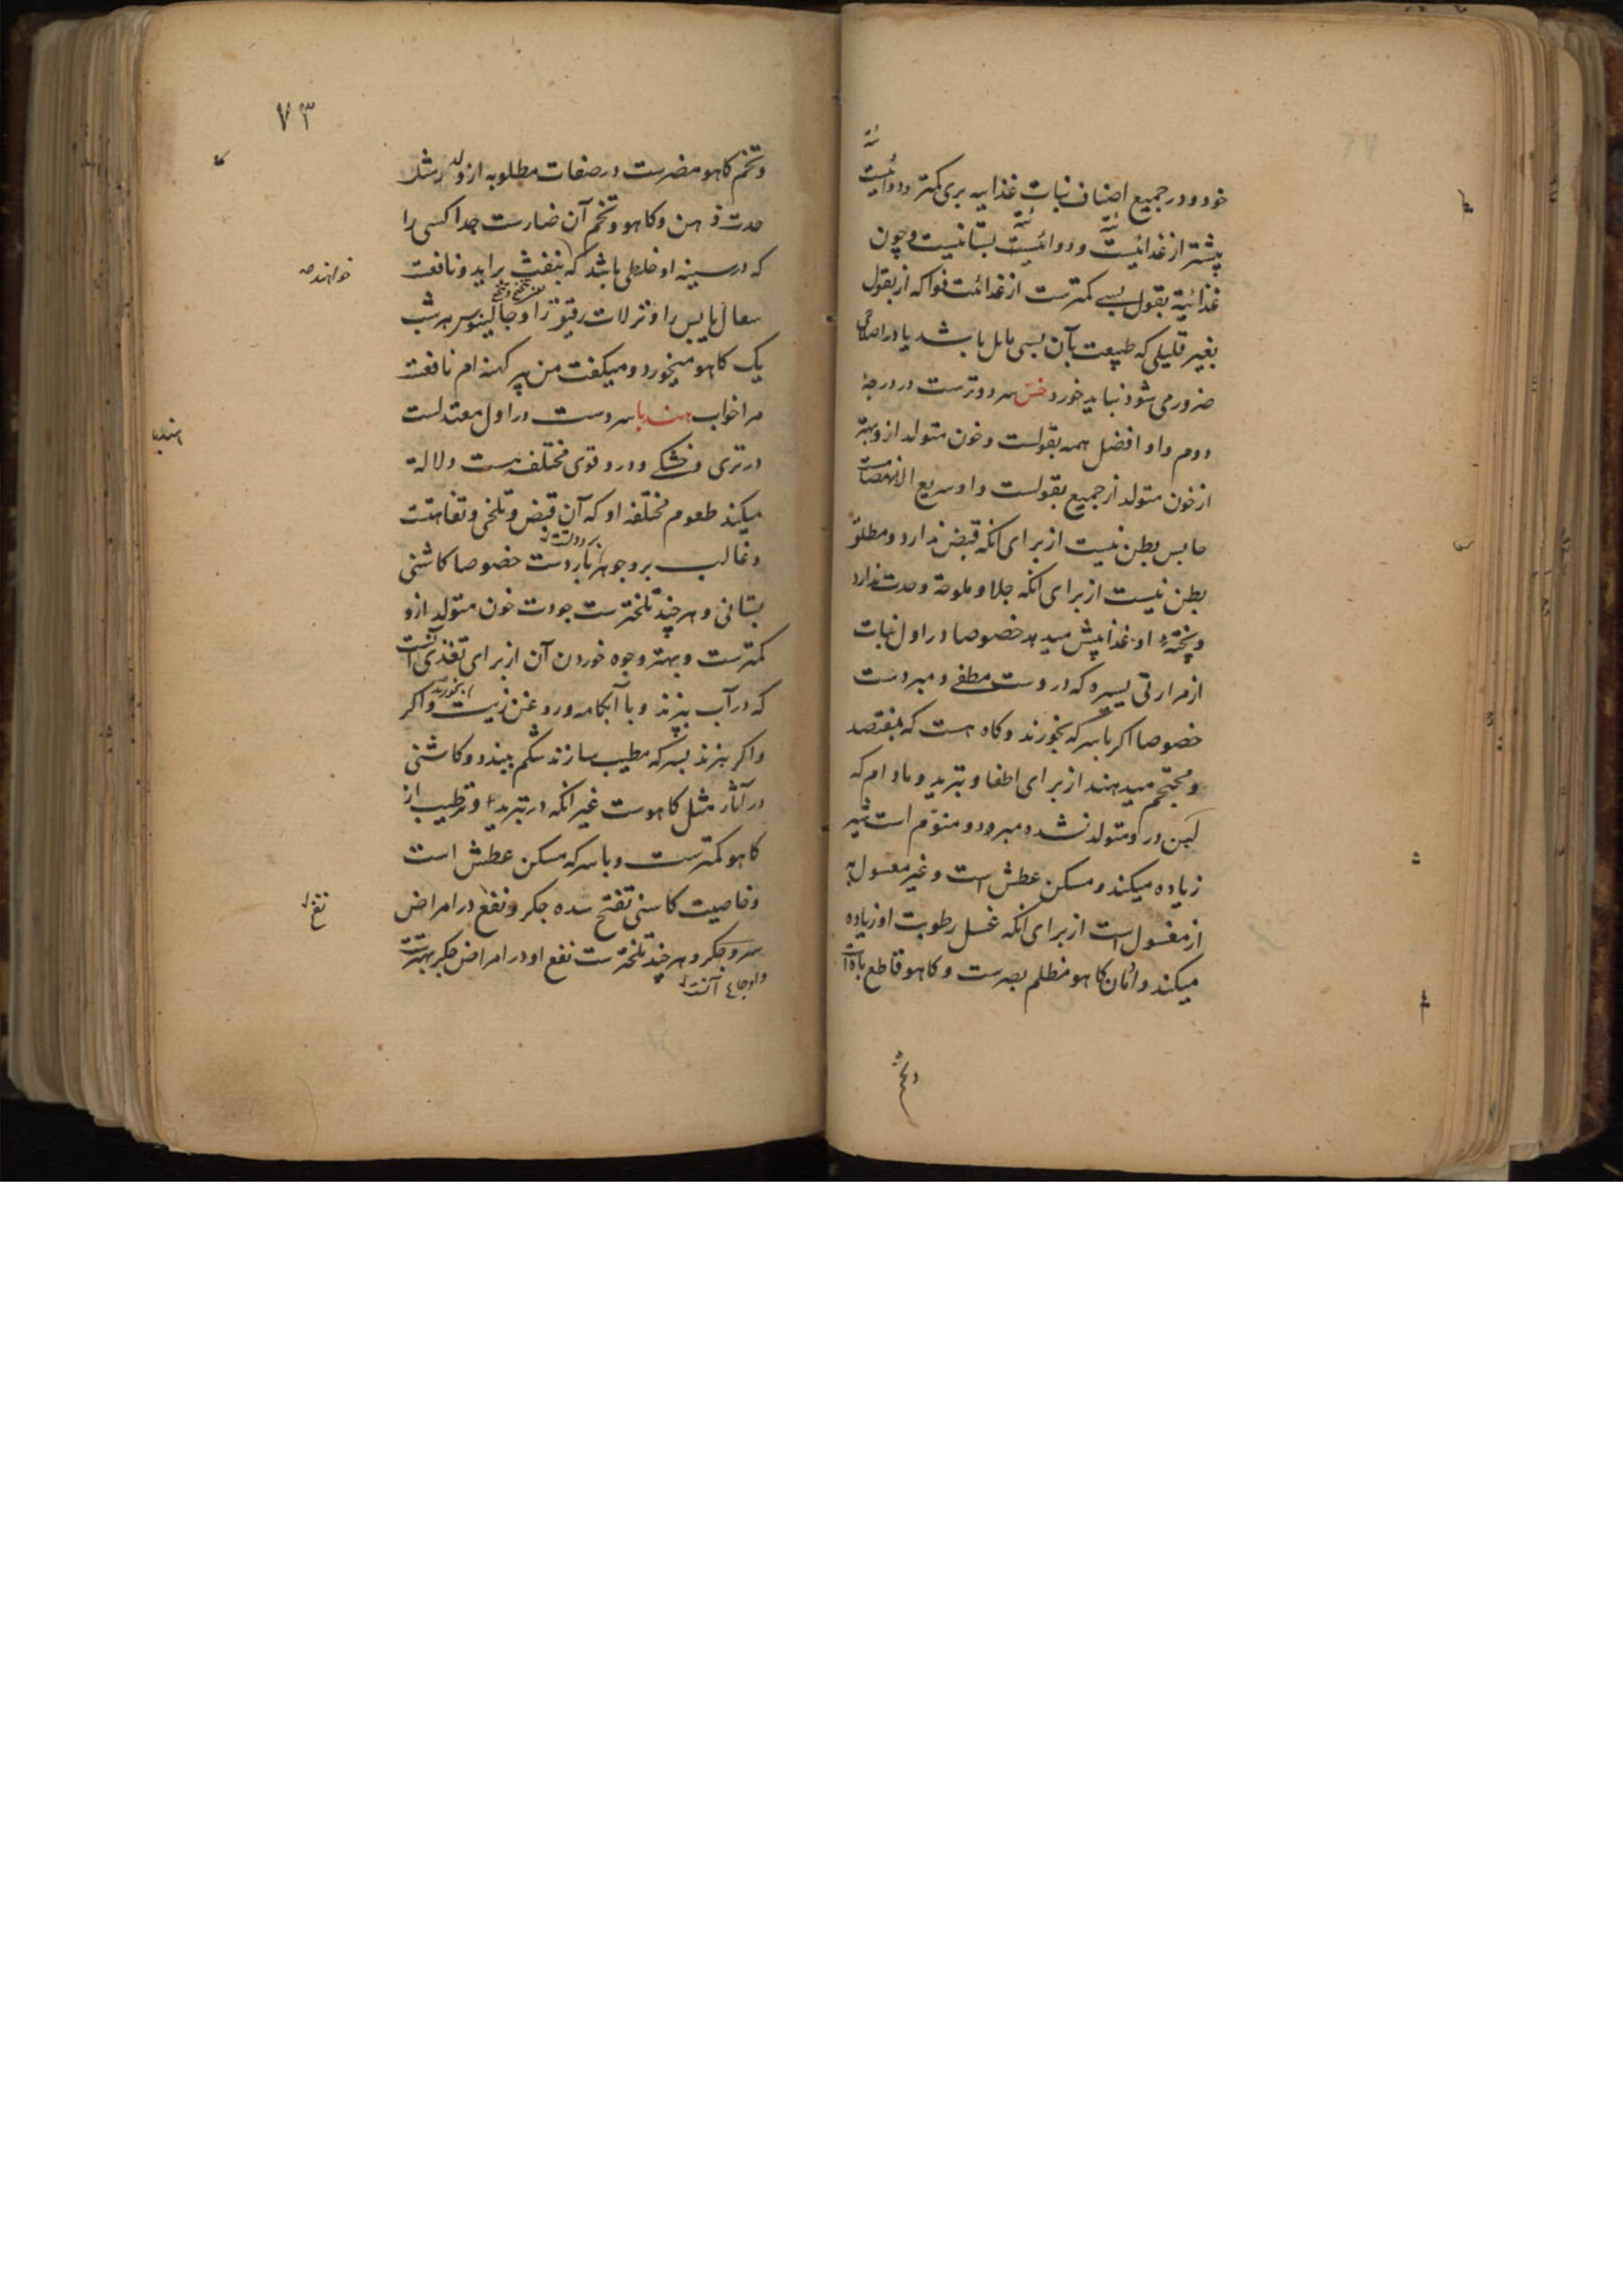 خود و در جمیع اصناف نبات غذاییه بری کمتر و دوائیت
پیشتر از غذائیت و دوائیت بستانیست و چون
غذائیة بقول بسی کمترست از غذائیت فواکه از بقول
بغیر قلیلی که طبیعت بآن بسی مایل باشد یا در اصلاحی
ضرور می شود نباید خورد خس سرد و ترست در درجهٔ
دوم و او افضل همه بقولست و خون متولد ازو بهتر
از خون متولد از جمیع بقولست و او سریع الانهضامست
حابس بطن نیست از برای آنکه قبض ندارد و مطلق
بطن نیست از برای آنکه جلا و ملوحة و حدت ندارد
و پختهٔ او غذا پیش میدهد خصوصا در اول نبات
از مرارتی یسیره که دروست مطفی و مبردست
خصوصا اکر با سرکه بخورند و کاه هست که بمفتصد
و محتجم میدهند از برای اطفا و تبرید و مادام که
لبن درو متولد نشده مبرد و منوّم است شیر
زیاده میکند و مسکن عطش است و غیر مغسول به
از مغسول است از برای آنکه غسل رطوبت او زیاده
میکند و ادمان کاهو مظلم بصرست و کاهو قاطع باه است
و تخم
۷۳
و تخم کاهو مضرست در صفات مطلوبه از ولد مثل
حدت ذهن و کاهو و تخم آن ضارست جدا کسی را
که در سینه او خلطی باشد که بنفث براید و نافعست
خواهند
سعال یابس را و نزلات رقیق را و جالینوس هر شب
یک کاهو میخورد و میکفت من پیر کهنه ام نافعست
مرا خواب هندبا سردست در اول معتدلست
هندبا
در تری و خشکی و درو قوی مختلف هست دلالة
میکند طعوم مختلفه او که آن قبض و تلخی و تفاهتست
و غالب برو جوهر باردست خصوصا کاشنی
بستانی و هر چند تلختر ست جودت خون متولد ازو
کمترست و بهتر وجوه خوردن آن از برای تغذی آنست
که در آب بپزند و با آبکامه و روغن زیت بخورند و اکر
و اکر بپزند بسرکه مطیب سازند شکم ببندد و کاشنی
در آثار مثل کاهوست غیر آنکه در تبرید و ترطیب از
کاهو کمترست و با سرکه مسکن عطش است
و خاصیت کاسنی تفتح سده جکر و نفع در امراض
نفع
سرد جکر و هر چند تلخترست نفع او در امراض جکر بهترست
و اوجاع آنست